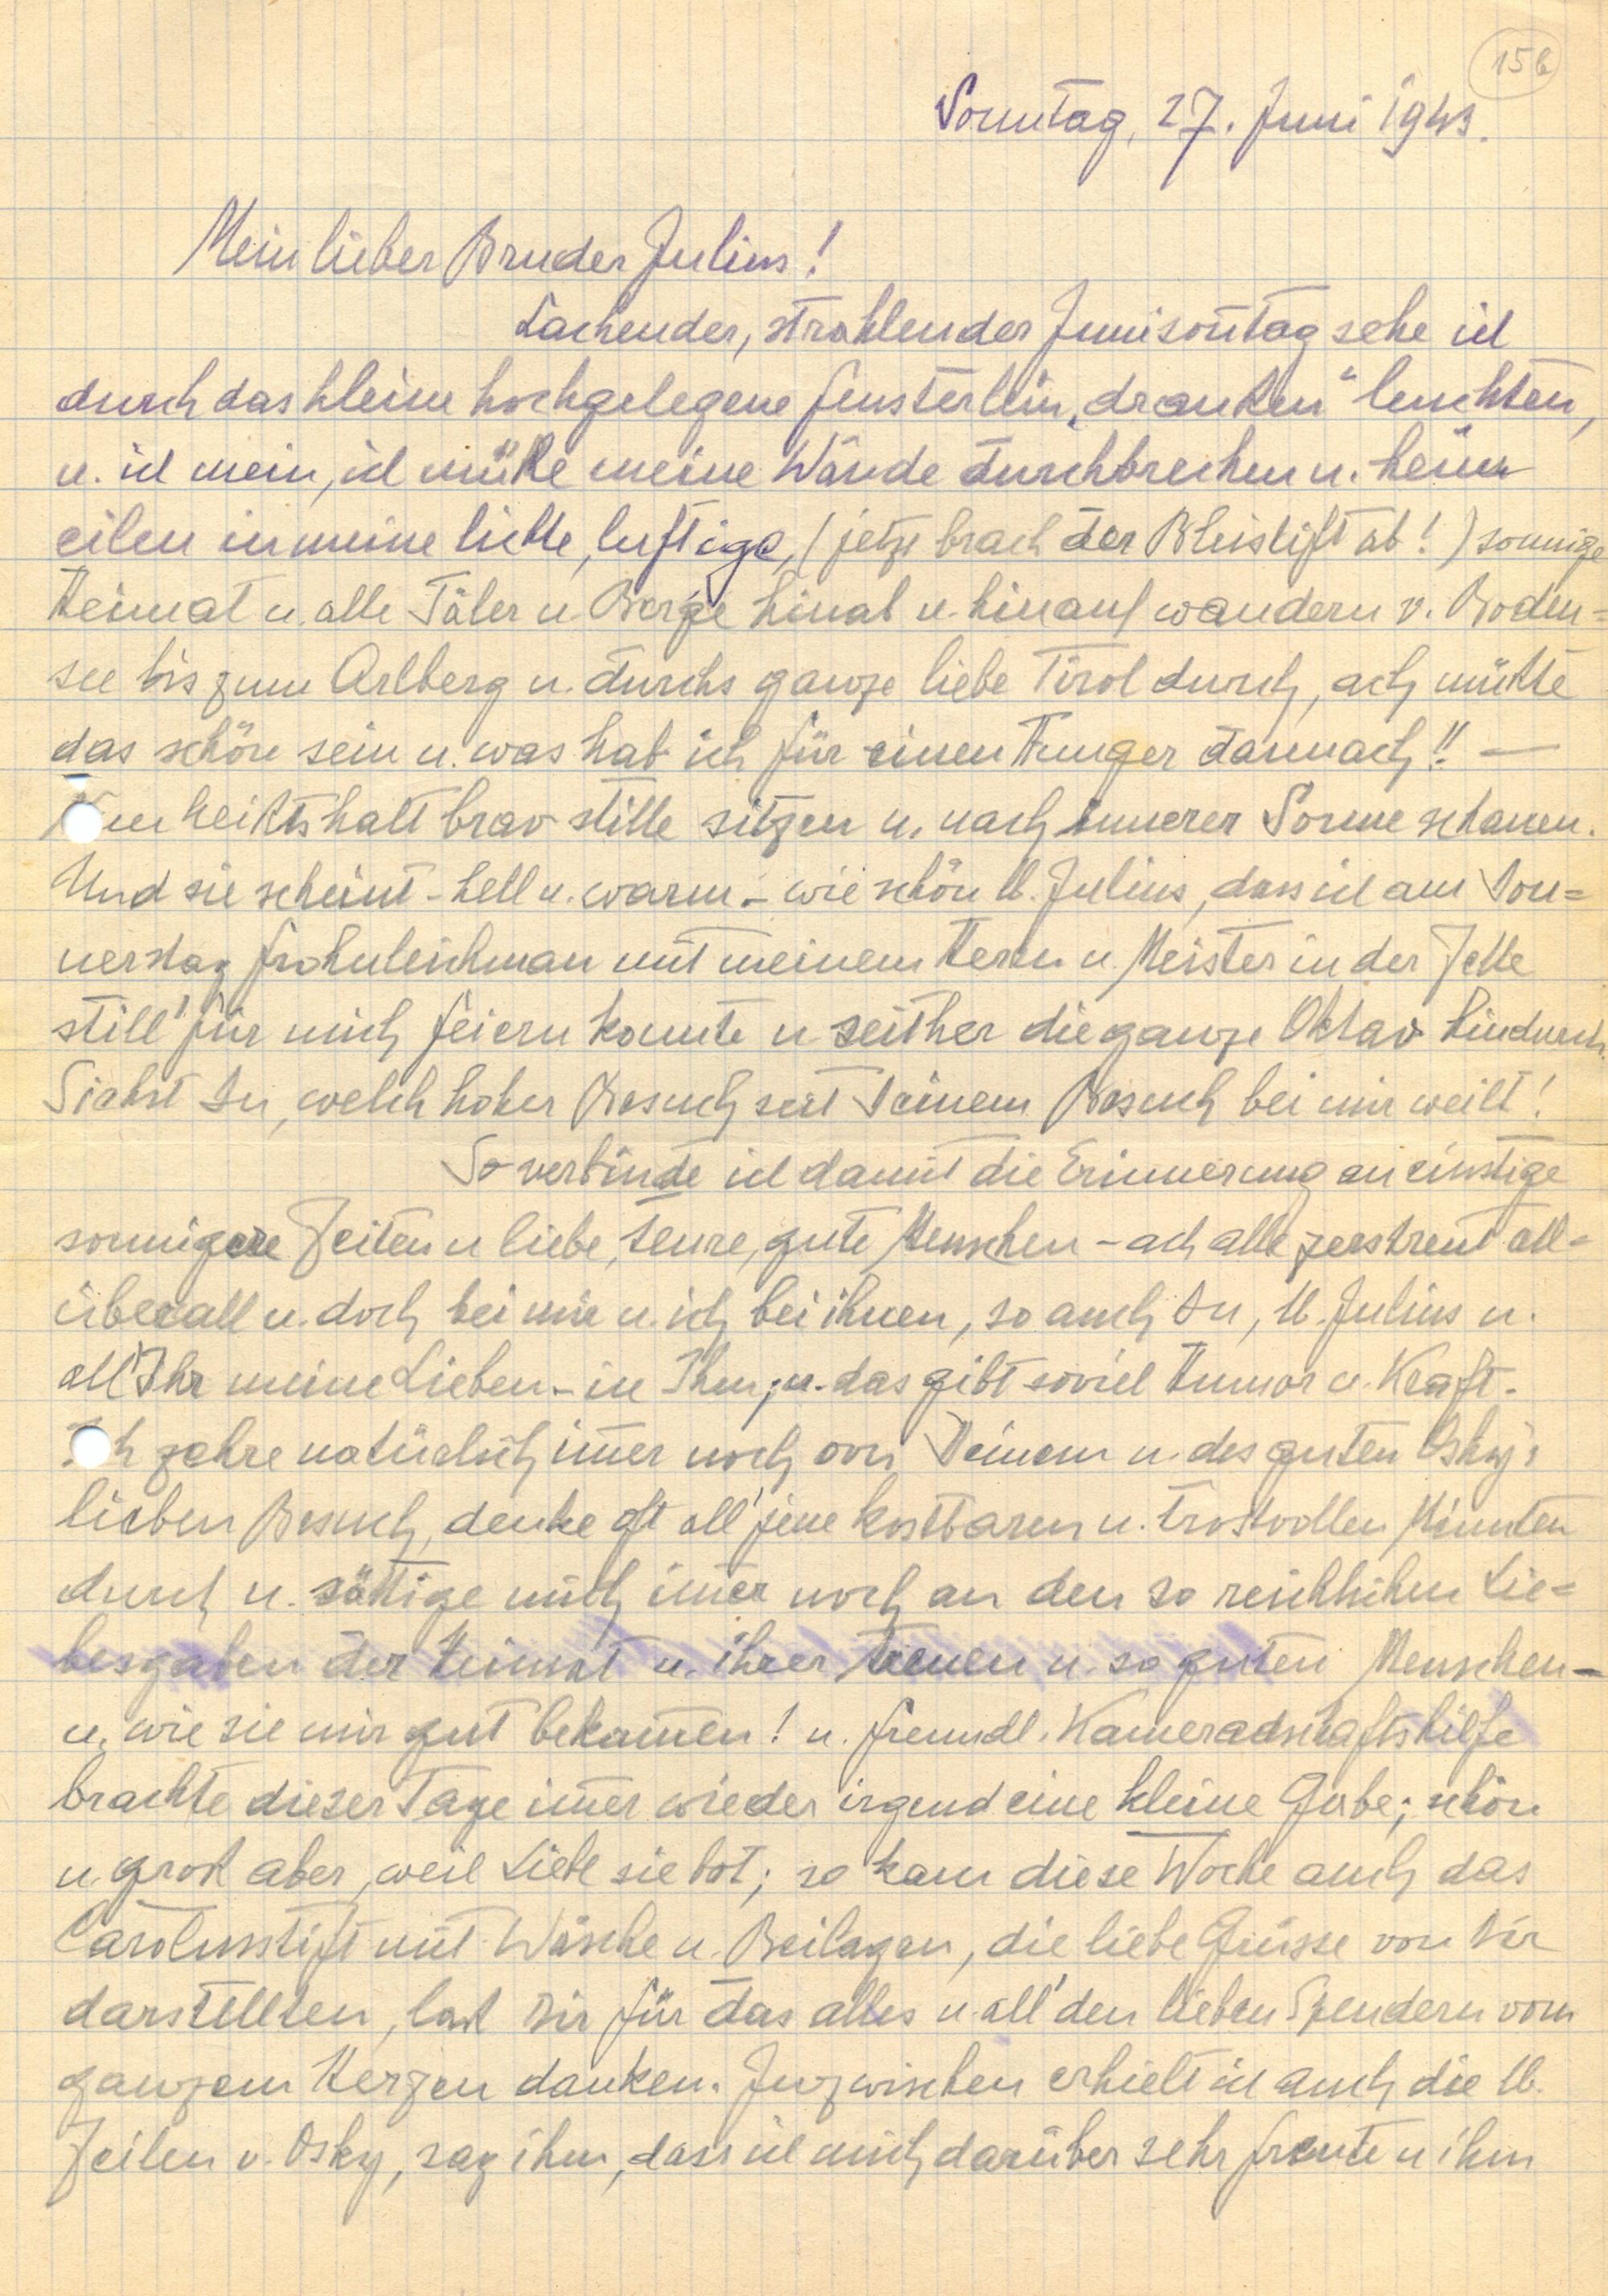 156
Sonntag, 27. Juni 1943.
Mein lieber Bruder Julius!
Lachender, strahlender Junisoñtag sehe ich
durch das kleine hochgelegene Fensterlein „draußen" leuchten,
u. ich mein, ich müßte meine Wände durchbrechen u. heim
eilen in meine lichte, luftige, (jetzt brach der Bleistift ab!) sonnige
Heimat u. alle Täler u. Berge hinab u. hinauf wandern v. Boden=
see bis zum Arlberg u. durchs ganze liebe Tirol durch, ach müßte
das schön sein u. was hab ich für einen Hunger darnach!! —
Nun heißts halt brav stille sitzen u. nach innerer Sonne schauen.
Und sie scheint - hell u. warm. - wie schön lb. Julius, dass ich am Don=
nerstag Frohnleichnam mit meinem Herrn u. Meister in der Zelle
still für mich feiern konnte u. seither die ganze Oktav hindurch.
Siehst Du, welch hoher Besuch seit Deinem Besuch bei mir weilt!
So verbinde ich damit die Erinnerung an einstige
sonnigere Zeiten u. liebe, teure, gute Menschen - ach alle zerstreut all=
überall u. doch bei mir u. ich bei ihnen, so auch Du, lb. Julius u.
all' Ihr meine Lieben - in Ihm; u. das gibt soviel Humor u. Kraft.
Ich zehre natürlich im̄er noch von Deinem u. des guten Osky's
lieben Besuch, denke oft all' jene kostbaren u. trostvollen Minuten
durch u. sättige mich im̄er noch an den so reichlichen Lie=
besgaben der Heimat u. ihrer treuen u. so guten Menschen -
u. wie sie mir gut bekom̄en! u. freundl. Kameradschaftshilfe
brachte dieser Tage im̄er wieder irgend eine kleine Gabe; schön
u. groß aber, weil Liebe sie bot; so kam diese Woche auch das
Carolusstift mit Wäsche u. Beilagen, die liebe Grüsse von Dir
darstellten, laß Dir für das alles u. all' den lieben Spendern vom
ganzem Herzen danken. Inzwischen erhielt ich auch die lb.
Zeilen v. Osky, sag ihm, dass ich mich darüber sehr freute u. ihm